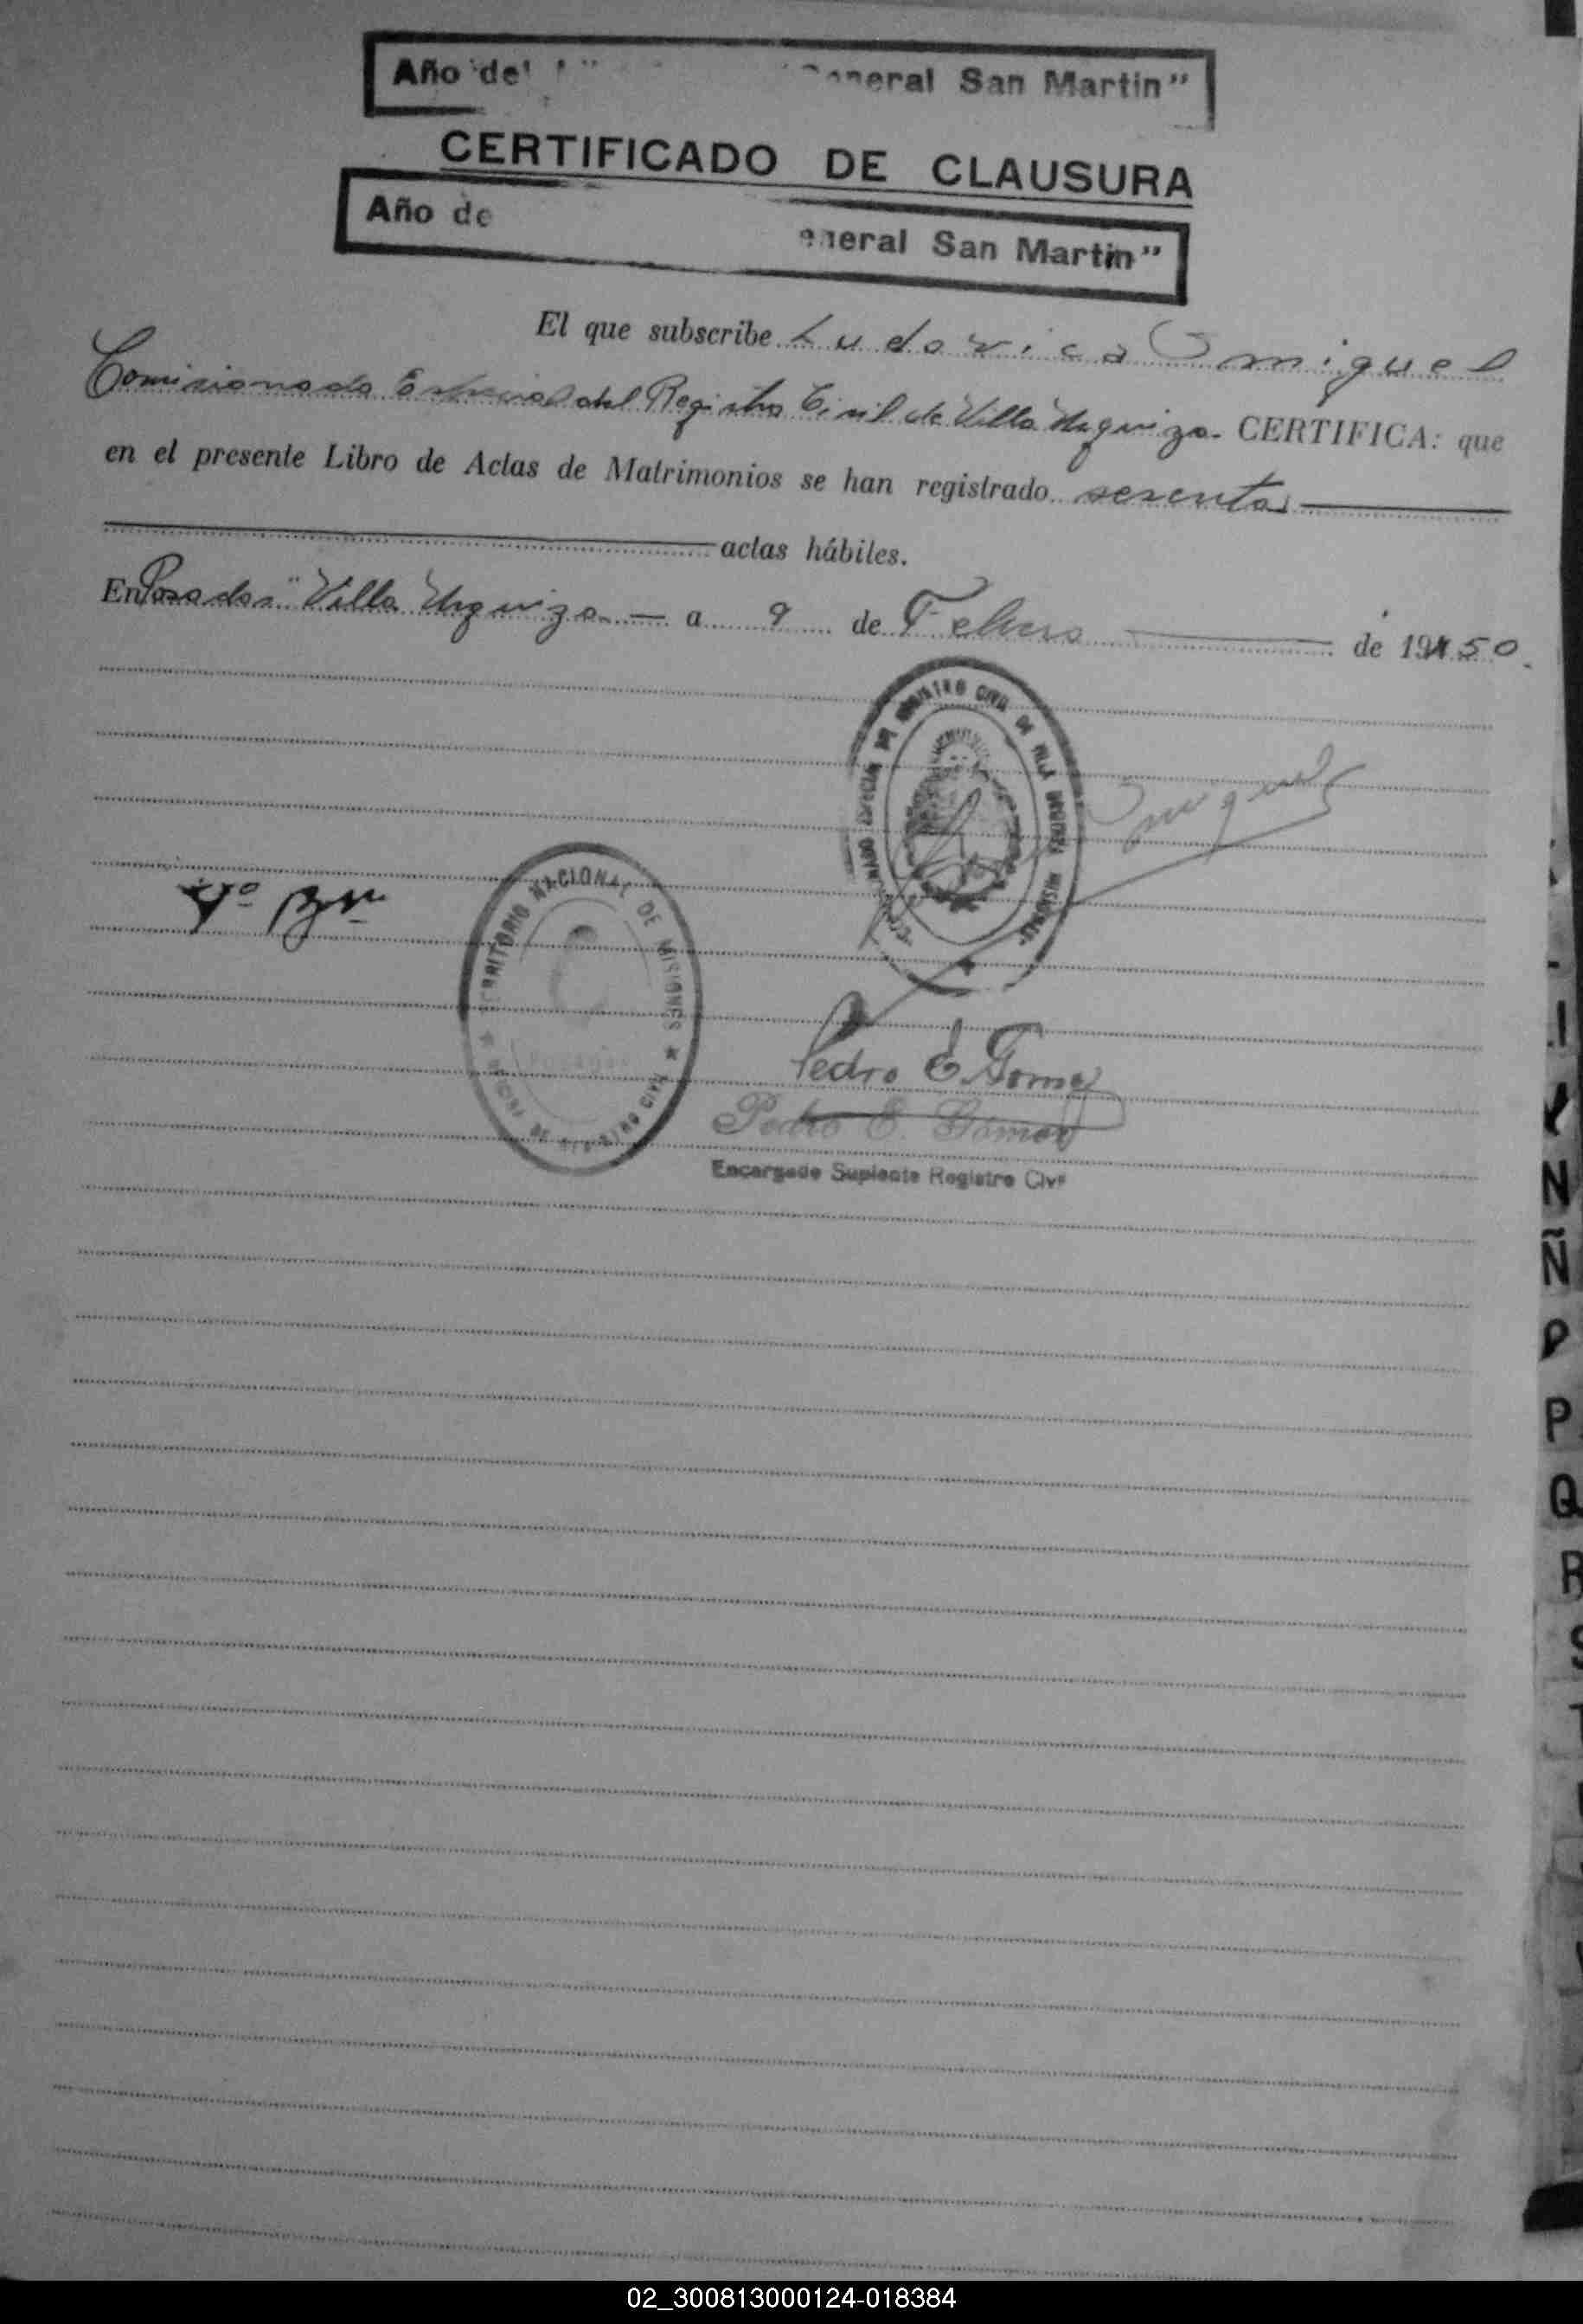 Año del General San Martin"
CERTIFICADO DE CLAUSURA
Año de General San Martin"
El que subscribe Ludovico Smiguel
Comisionado Especial del Registro Civil de Villa Urquiza. CERTIFICA: que
en el presente Libro de Actas de Matrimonios se han registrado sesenta
actas hábiles.
En Posadas "Villa Urquiza — a 9 de Febrero de 19 50.
REGISTRO CIVIL DE VILLA URQUIZA MISIONES
Vº Bn
TERRITORIO NACIONAL DE MISIONES ★ OFICINA DE REGISTRO CIVIL ★
Pedro E. Gomez
Pedro E. Gómez
Encargado Suplente Registro Civil
N
Ñ
P
P
Q
R
S
02_300813000124-018384